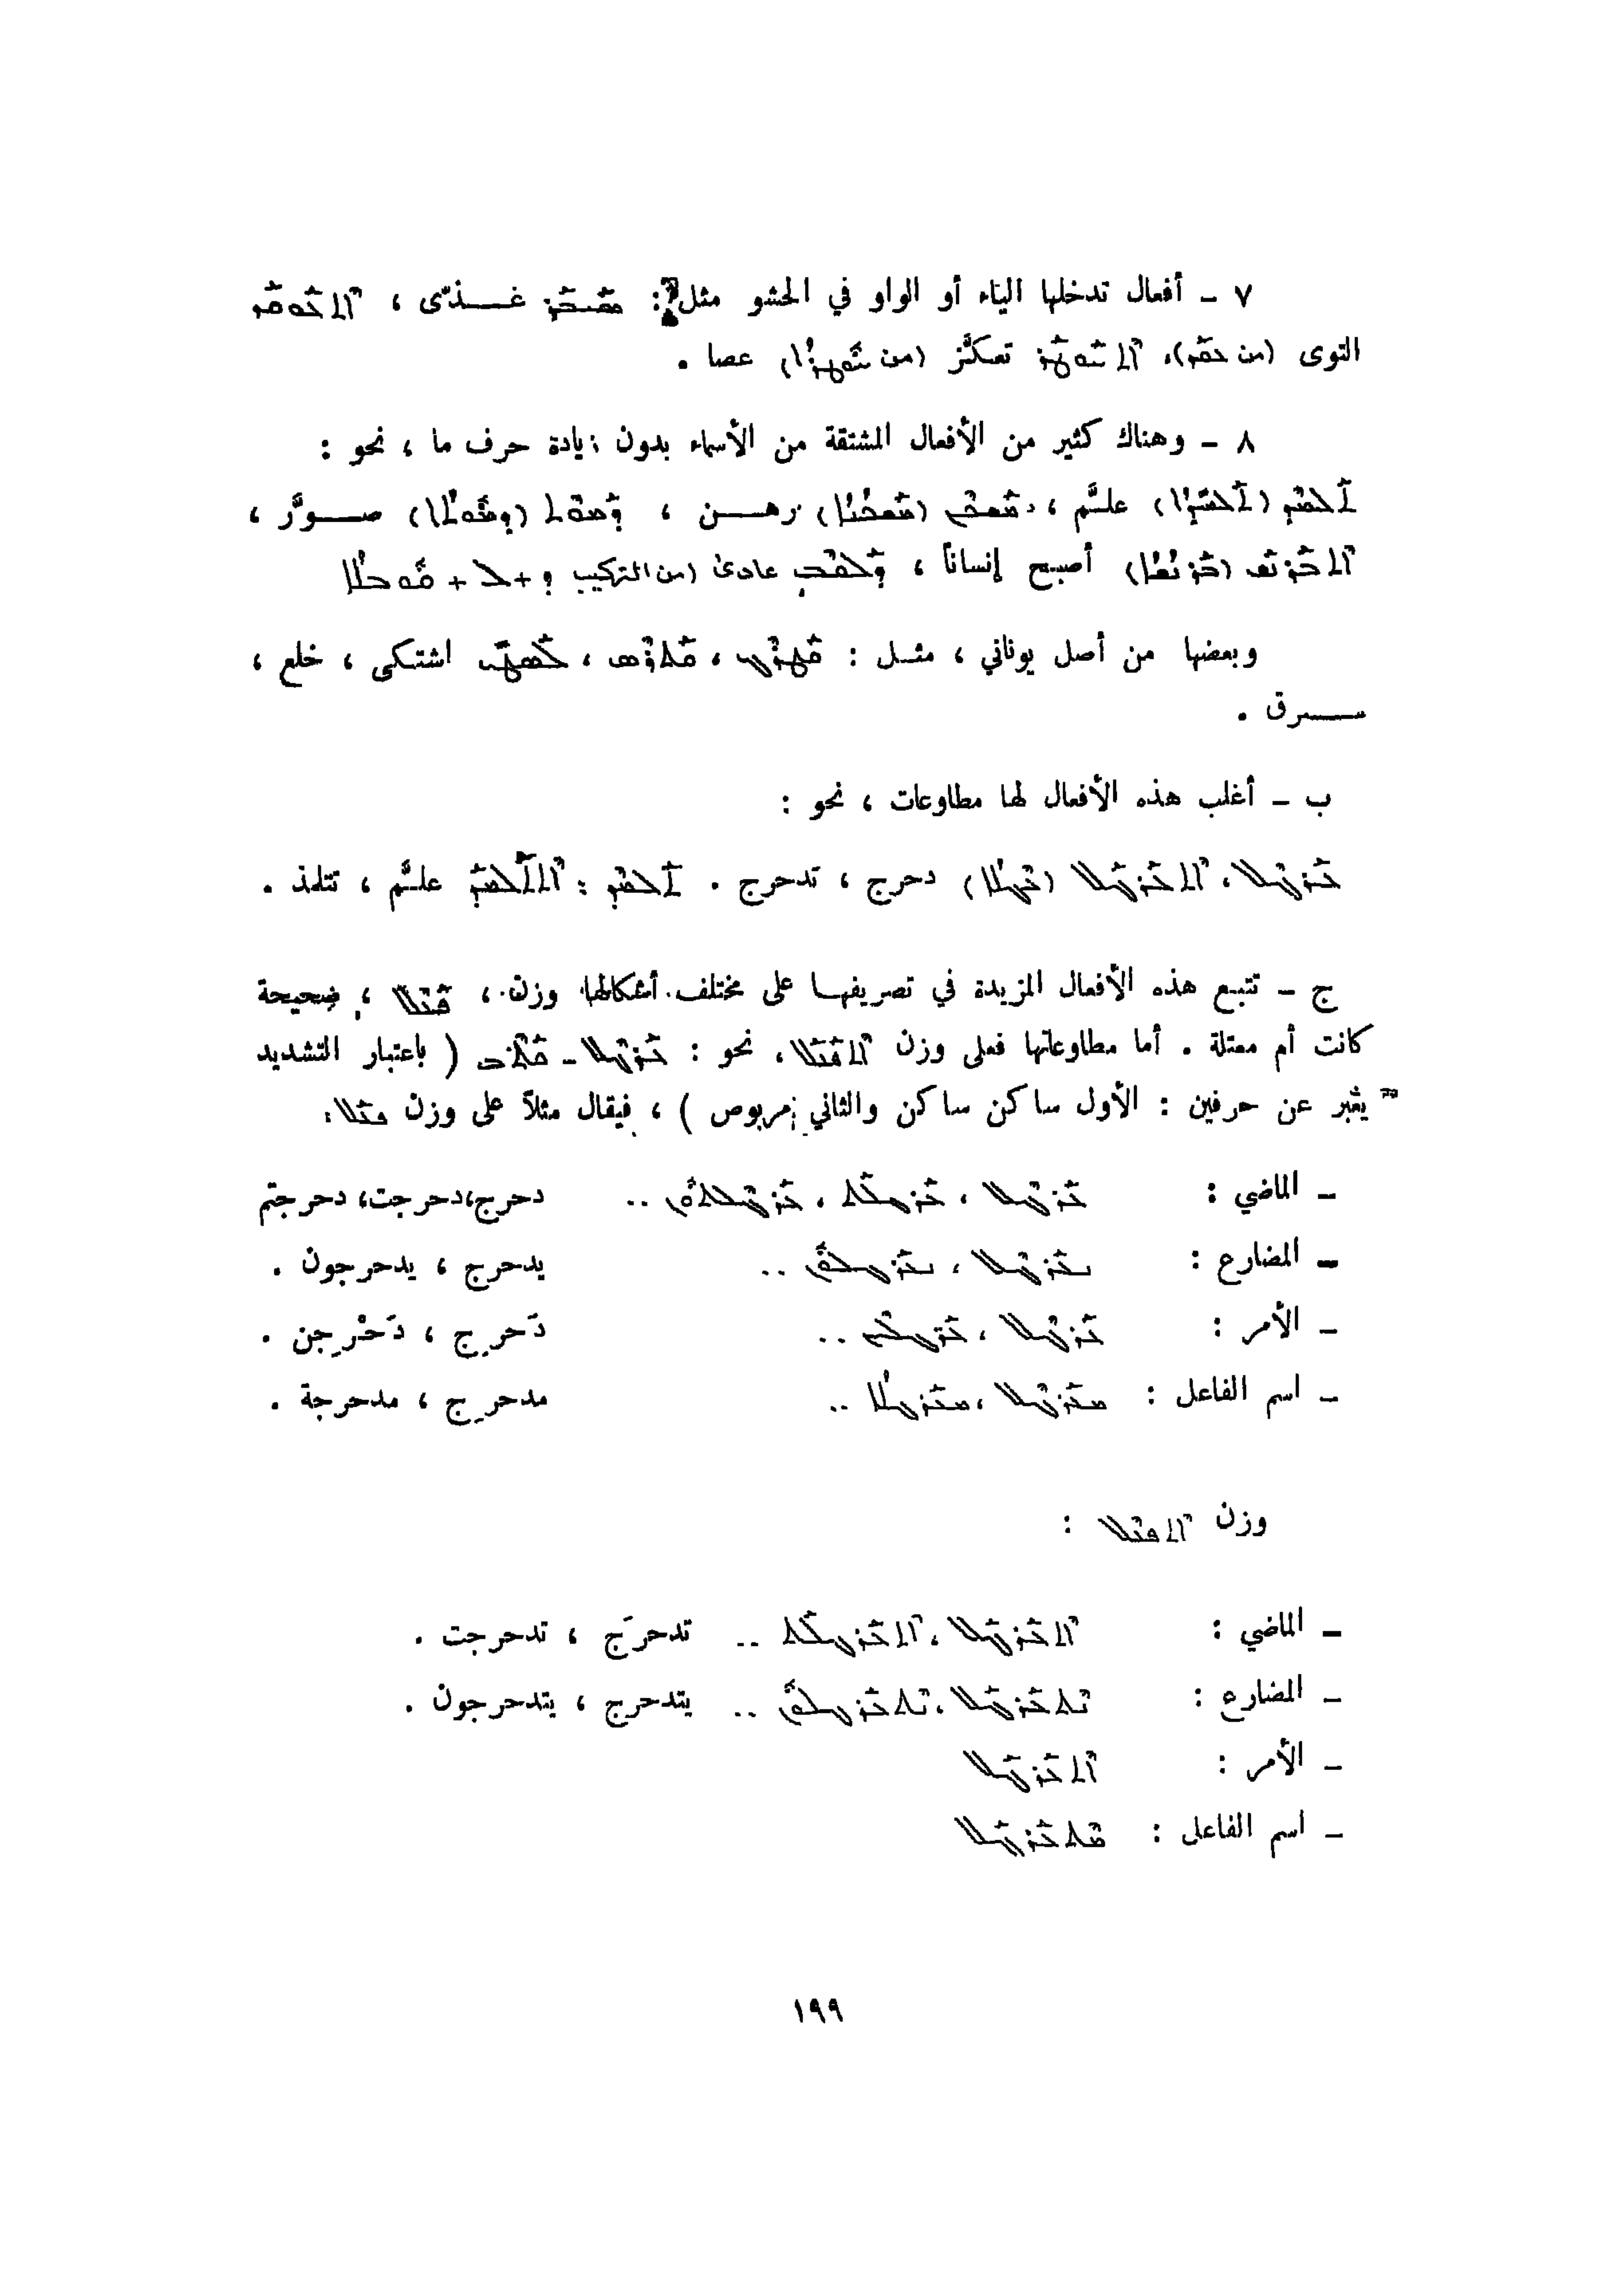 ٧ – أفعال تدخلها الياء أو الواو في الحشو مثل : ܣܰܝܒܰܪ غـــذّى ، ܐܶܬܥܰܘܩܰܡ
التوى (من ܥܩܡ)، ܐܶܬܚܰܘܛܰܪ تعكَّز (من ܚܽܘܛܪܳܐ) عصا .
٨ – وهناك كثير من الأفعال المشتقة من الأسماء بدون زيادة حرف ما ، نحو :
ܬܰܠܡܶܕ (ܬܰܠܡܺܝܕܳܐ) علَّم ، ܡܰܫܟܶܢ (ܡܰܫܟܢܳܐ) رهـــن ، (ܕܡܽܘܬܳܐ) صـــوَّر ،
ܐܶܬܒܰܪܢܰܫ (ܒܰܪܢܳܫܳܐ) أصبح إنساناً ، عادى (من التركيب ܕ + ܠ +
وبعضها من أصل يوناني ، مثـل : ܩܰܛܪܶܓ ، ܩܰܬܪܶܣ ، اشتكى ، خلع ،
ســـرق .
ب – أغلب هذه الأفعال لها مطاوعات ، نحو :
ܥܰܪܓܶܠ ، ܐܶܬܥܰܪܓܰܠ (ܥܶܓܠܳܐ) دحرج ، تدحرج . ܬܰܠܡܶܕ : ܐܶܬܬܰܠܡܰܕ علَّم ، تتلمذ .
ج – تتبـع هذه الأفعال المزيدة في تصريفهـا على مختلف أشكالها وزن ، ܩܰܬܶܠ ، صحيحة
كانت أم معتلة . أما مطاوعاتها فعلى وزن نحو : ܥܰܪܓܶܠ – ( باعتبار التشديد
يعبر عن حرفين : الأول ساكن ساكن والثاني مربوص ) ، فيقال مثلاً على وزن
– الماضي : ܥܰܪܓܶܠ ، ܥܰܪܓܠܰܬ ، ܥܰܪܓܶܠܬܽܘܢ .. دحرج،دحرجت، دحرجتم
– المضارع : ܢܥܰܪܓܶܠ ، ܢܥܰܪܓܠܽܘܢ .. يدحرج ، يدحرجون .
– الأمر : ܥܰܪܓܶܠ ، ܥܰܪ̈ܓܠܶܝܢ .. دَحرِج ، دَحْرِجن .
– اسم الفاعل : ܡܥܰܪܓܶܠ ، ܡܥܰܪܓܠܳܐ .. مدحرِج ، مدحرجة .
وزن :
– الماضي : ܐܶܬܥܰܪܓܰܠ ، ܐܶܬܥܰܪܓܠܰܬ .. تدحرَج ، تدحرجت .
– المضارع : ܢܶܬܥܰܪܓܰܠ ، ܢܶܬܥܰܪܓܠܽܘܢ .. يتدحرج ، يتدحرجون .
– الأمر : ܐܶܬܥܰܪܓܰܠ
– اسم الفاعل : ܡܶܬܥܰܪܓܰܠ
١٩٩